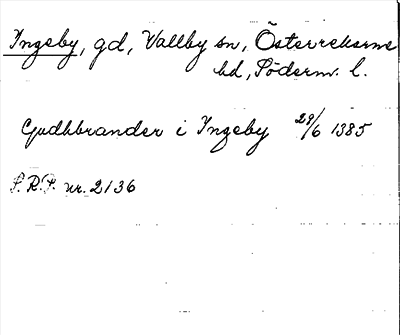 Ingeby, gd, Vallby sn, Österrekarne
hd, Söderm. l.
Gudhbrander i Ingeby 29/6 1385
S.R.P. nr. 2136